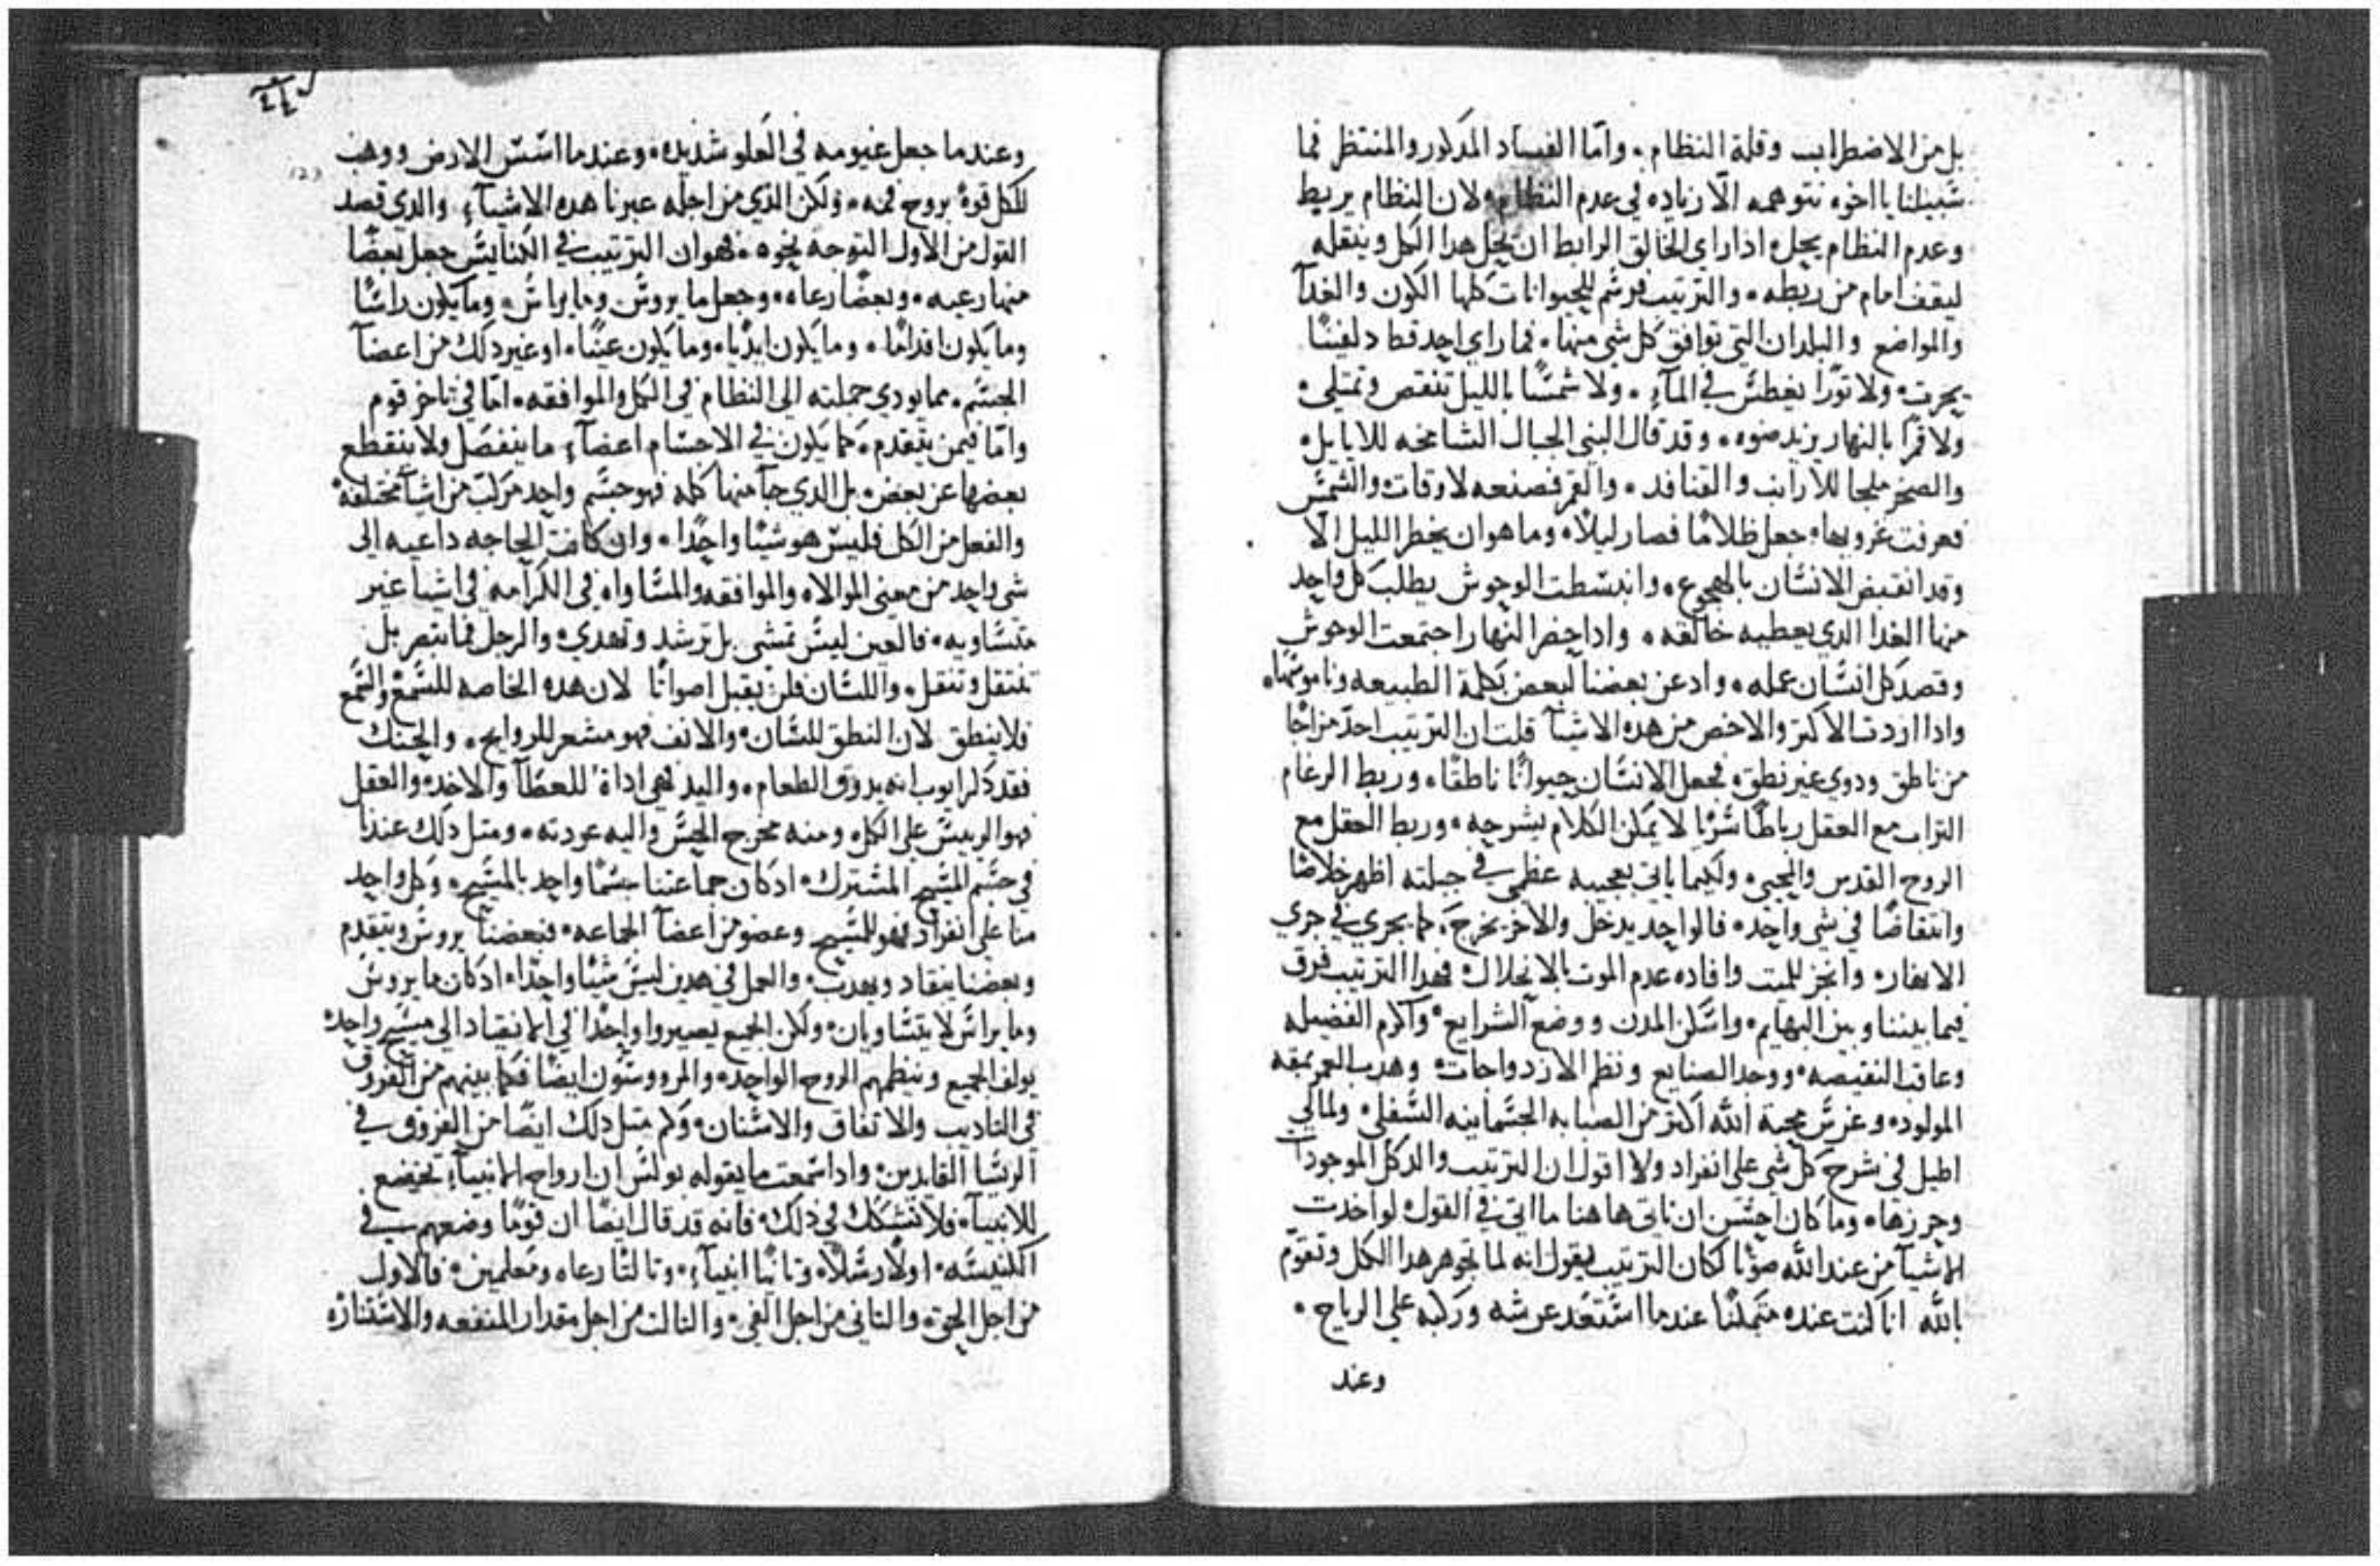 بل من الاضطراب وقلة النظام. واما الفساد المدكور والمنتظر فما
سبيلنا يا اخوه نتوهمه الا زياده في عدم النظام. لان النظام يربط
وعدم النظام يحل. ادا راي الخالق الرابط ان يحل هدا الكل وينقله
ليقف امام من ربطه. والترتيب فرسم للحيوانات كلها الكون والغدآ
والمواضع والبلدان التي توافق كل شي منها. فما راي احد قط دلفينًا
يحرت. ولا تورًا يغطس في المآء. ولا شمسًا بالليل تنقص وتمتلي.
ولا قمرًا بالنهار يزيد ضوه. وقد قال النبي الجبال الشامخه للايايل.
والصخر ملجا للارانب والقنافد. والقمر فصنعه لاوقات. والشمس
فعرفت غروبها. جعل ظلامًا فصار ليلا. وما هو ان يخطر الليل الا
وقد انقبض الانسان بالهجوع. وانبسطت الوحوش يطلب كل واحد
منها الغدا الدي يعطيه خالقه. وادا حضر النهار اجتمعت الوحوش
وقصد كل انسان عمله. وادعن بعضنا لبعض بكلمة الطبيعه وناموسها.
وادا اردت الاكتر والاخص من هده الاشيآ قلت ان الترتيب احد مزاجا
من ناطق ودوي غير نطق. فجعل الانسان حيوانًا ناطقًا. وربط الرغام
التراب مع العقل رباطًا سريا لا يمكن الكلام بشرحه. وربط العقل مع
الروح القدس والمحيي. ولكيما ياتي بعجيبه عظمي في جبلته اظهر خلاصًا
وانتقاضًا في شي واحد. فالواحد يدخل والاخر يخرج. كما يجري في جري
الانهار. وانجز للميت وافاده عدم الموت بالانحلال. فهدا الترتيب فرق
فيما بيننا وبين البهايم. واسكن المدن ووضع الشرايع. واكرم الفضيله
وعاقب النقيصه. ووجد الصنايع ونظم الازدواجات. وهدب العمر بمقه
المولود. وغرس محبة الله اكتر من الصبابه الجسمانيه السفلي. ولما لي
اطيل في شرح كل شي على انفراد ولا اقول ان الترتيب والد كل الموجودات
وحررها. وما كان احسن ان ناتي هاهنا ما اتى في القول. لو اخدت
الاشيآ من عند الله صوتا لكان الترتيب يقول انه لما تجوهر هدا الكل وتقوم
بالله انا كنت عنده متمكنًا عندما استعد عرشه وركبه علي الرياح.
وعند
وعندما جعل غيومه في العلو شديده. وعندما اسس الارض ووهب
لكل قوة بروح فمه. ولكن الدي من اجله عبرنا هده الاشيآء. والدي قصد
القول من الاول التوجه نحوه. فهو ان الترتيب في الكنايس جعل بعضًا
منها رعيه. وبعضًا رعاه. وجعل ما يروس وما يراس. وما يكون راسًا
وما يكون اقدامًا. وما يكون ايديا. وما يكون عينًا. او غير دلك من اعضآ
الجسم. مما يودي جملته الى النظام في الكل والموافقه. اما في تاخر قوم
واما فيمن يتقدم. كما يكون في الاجسام اعضآء ما ينفصل ولا ينقطع
بعضها عن بعض. بل الدي جآ منها كله فهو جسم واحد مركب من اشيآ مختلفة
والفعل من الكل فليس هو شيًا واحدًا. وان كانت الحاجه داعيه الى
شي واحد من معنى الموالاه والموافقه والمساواه في الكرامه في اشيا غير
متساويه. فالعين ليس تمشي بل ترشد وتهدي. والرجل فما تبصر بل
تنتقل وتنقل. واللسان فلن يقبل اصواتًا لان هده الخاصه للسمع. والسمع
فلا ينطق لان النطق للسان. والانف فهو مشعر للروايح. والحنك
فقد دكر ايوب انه يدوق الطعام. واليد فهي اداة للعطآ والاخد. والعقل
فهو الرييس على الكل. ومنه مخرج الحس واليه عودته. ومتل دلك عندنا
في جسم المسيح المشترك. اد كان جماعتنا جسمًا واحد بالمسيح. وكل واحد
منا على انفراد فهو للمسيح وعضو من اعضآ الجماعه. فبعضنا يروس ويتقدم
وبعضنا ينقاد ويهدب. والعمل في هدين ليس شيًا واحدًا. اد كان ما يروس
وما يراس لا يتساويان. ولكن الجميع يصيروا واحدًا في الانقياد الى مسيح واحد.
يولف الجميع وينظمهم الروح الواحد. والمرووسون ايضًا فكم بينهم من الفروق
في التاديب والاتفاق والاسنان. وكم متل دلك ايضًا من الفروق في
الريسا القايدين. وادا سمعت ما يقوله بولس ان ارواح الانبيآء تخضع
للانبيآ. فلا تشكك في دلك. فانه قد قال ايضًا ان قومًا وضعهم في
الكنيسه. اولا رسلا. وتانيًا انبيآء. وتالتًا رعاه ومعلمين. فالاول
من اجل الحق. والتاني من اجل الفي. والتالت من اجل مقدار المنفعه والاستناره